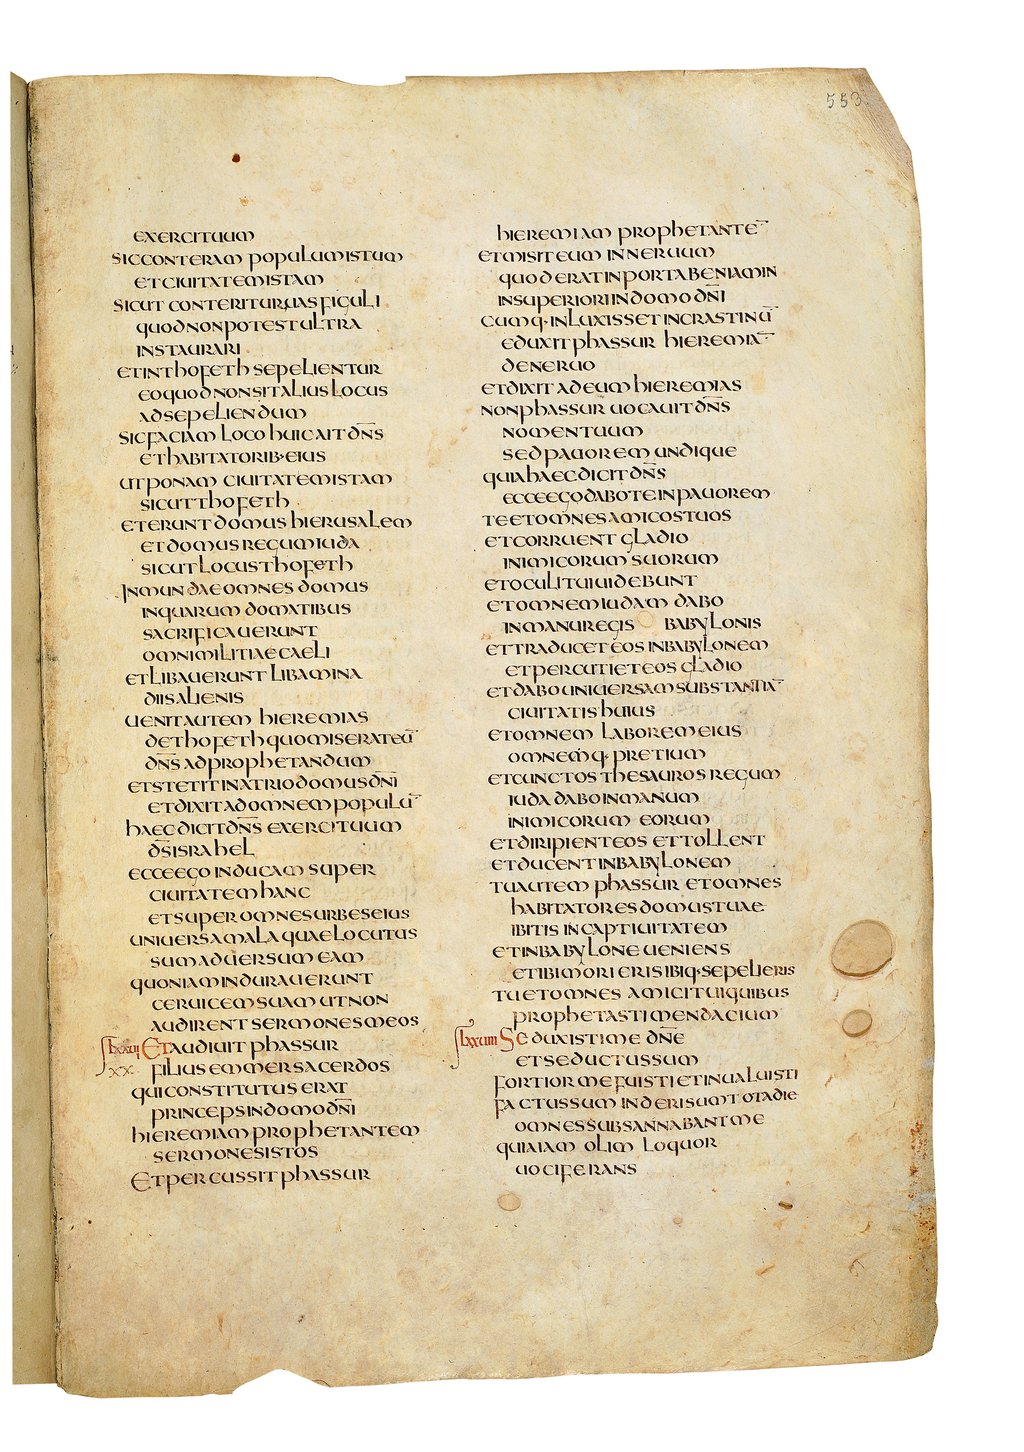 553
EXERCITUUM
SIC CONTERAM POPULUM ISTUM
ET CIUITATEM ISTAM
SICUT CONTERITUR UAS FIGULI
QUOD NON POTEST ULTRA
INSTAURARI
ET IN THOFETH SEPELIENTUR
EO QUOD NON SIT ALIUS LOCUS
AD SEPELIENDUM
SIC FACIAM LOCO HUIC AIT DN̄S
ET HABITATORIB· EIUS
UT PONAM CIUITATEM ISTAM
SICUT THOFETH
ET ERUNT DOMUS HIERUSALEM
ET DOMUS REGUM IUDA
SICUT LOCUS THOFETH
INMUNDAE OMNES DOMUS
IN QUARUM DOMATIBUS
SACRIFICAUERUNT
OMNI MILITIAE CAELI
ET LIBAUERUNT LIBAMINA
DIIS ALIENIS
UENIT AUTEM HIEREMIAS
DE THOFETH QUO MISERAT EŪ
DN̄S AD PROPHETANDUM
ET STETIT IN ATRIO DOMUS DN̄I
ET DIXIT AD OMNEM POPULŪ
HAEC DICIT DN̄S EXERCITUUM
DS̄ ISRAHEL
ECCE EGO INDUCAM SUPER
CIUITATEM HANC
ET SUPER OMNES URBES EIUS
UNIUERSA MALA QUAE LOCUTUS
SUM ADUERSUM EAM
QUONIAM INDURAUERUNT
CERUICEM SUAM UT NON
AUDIRENT SERMONES MEOS
lxxvii ET AUDIUIT PHASSUR
xx FILIUS EMMER SACERDOS
QUI CONSTITUTUS ERAT
PRINCEPS IN DOMO DN̄I
HIEREMIAM PROPHETANTEM
SERMONES ISTOS
ET PERCUSSIT PHASSUR
HIEREMIAM PROPHETANTĒ
ET MISIT EUM IN NERUUM
QUOD ERAT IN PORTA BENIAMIN
IN SUPERIORI IN DOMO DN̄I
CUMQ· INLUXISSET IN CRASTINŪ
EDUXIT PHASSUR HIEREMIĀ
DE NERUO
ET DIXIT AD EUM HIEREMIAS
NON PHASSUR UOCAUIT DN̄S
NOMEN TUUM
SED PAUOREM UNDIQUE
QUIA HAEC DICIT DN̄S
ECCE EGO DABO TE IN PAUOREM
TE ET OMNES AMICOS TUOS
ET CORRUENT GLADIO
INIMICORUM SUORUM
ET OCULI TUI UIDEBUNT
ET OMNEM IUDAM DABO
IN MANU REGIS BABYLONIS
ET TRADUCET EOS IN BABYLONEM
ET PERCUTIET EOS GLADIO
ET DABO UNIUERSAM SUBSTANTIĀ
CIUITATIS HUIUS
ET OMNEM LABOREM EIUS
OMNEMQ· PRETIUM
ET CUNCTOS THESAUROS REGUM
IUDA DABO IN MANUM
INIMICORUM EORUM
ET DIRIPIENT EOS ET TOLLENT
ET DUCENT IN BABYLONEM
TU AUTEM PHASSUR ET OMNES
HABITATORES DOMUS TUAE
IBITIS IN CAPTIUITATEM
ET IN BABYLONE UENIENS
ET IBI MORIERIS IBIQ· SEPELIERIS
TU ET OMNES AMICI TUI QUIBUS
PROPHETASTI MENDACIUM
lxxviii SEDUXISTI ME DN̄E
ET SEDUCTUS SUM
FORTIOR ME FUISTI ET INUALUISTI
FACTUS SUM IN DERISUM TOTA DIE
OMNES SUBSANNABANT ME
QUIA IAM OLIM LOQUOR
UOCIFERANS